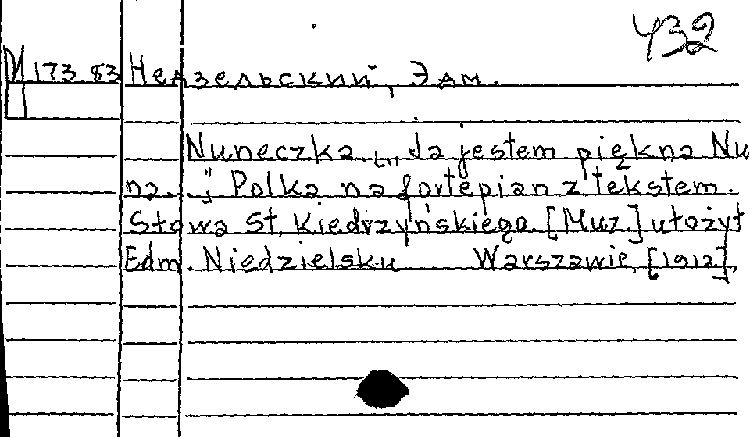 432
М 173.83 Недзельский, Эдм.
Nuneczka. „Ja jestem piękna Nu
na..." Polka na fortepian z tekstem.
Słowa St. Kiedrzyńskiego. [Muz.] ułożył
Edm. Niedzielsku Warszawie, [1912].